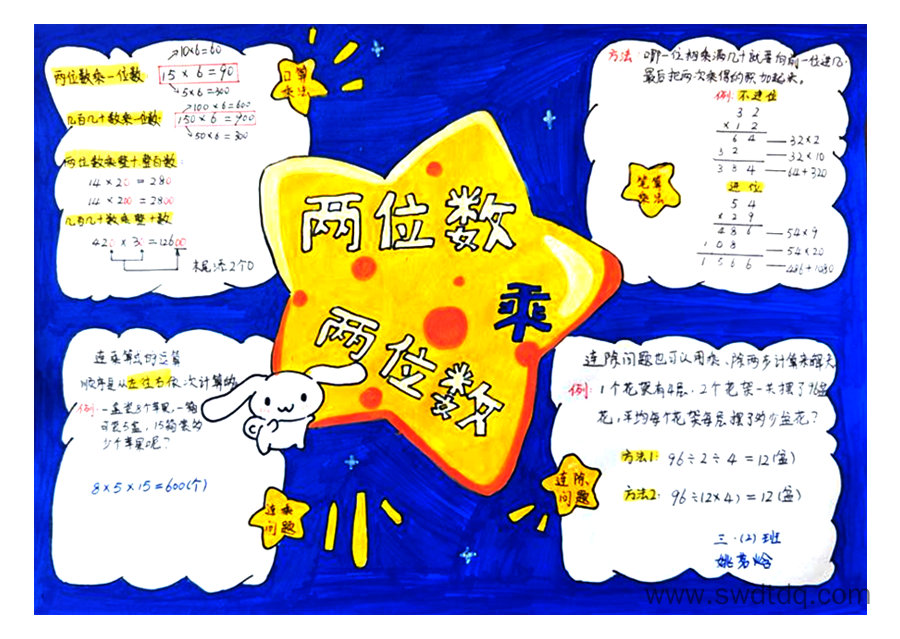 两位数乘一位数
10×6=60
15×6=90
5×6=300
几百几十数乘一位数
100×6=600
150×6=900
50×6=300
两位数乘整十整百数:
14×20=280
14×200=2800
几百几十数乘整十数
420×30=12600
末尾添2个0
口算
乘法
方法:哪一位相乘满几十就要向前一位进几,
最后把两次乘得的积加起来。
例:不进位
32
×12
64 — 32×2
32 — 32×10
384 — 64+320
进位
54
×29
486 — 54×9
108 — 54×20
1566 — 486+1080
笔算
乘法
两位数
乘
两位数
连乘算式的运算
顺序是从左往右依次计算的
例:一盒装8个苹果,一箱
可装5盒,15箱装多
少个苹果呢?
8×5×15=600(个)
连乘
问题
连除问题也可以用乘、除两步计算来解决
例:1个花架有4层,2个花架一共摆了96盆
花,平均每个花架每层摆了多少盆花?
方法1:96÷2÷4=12(盆)
方法2:96÷(2×4)=12(盆)
连除
问题
三·(2)班
www.swdtdq.com